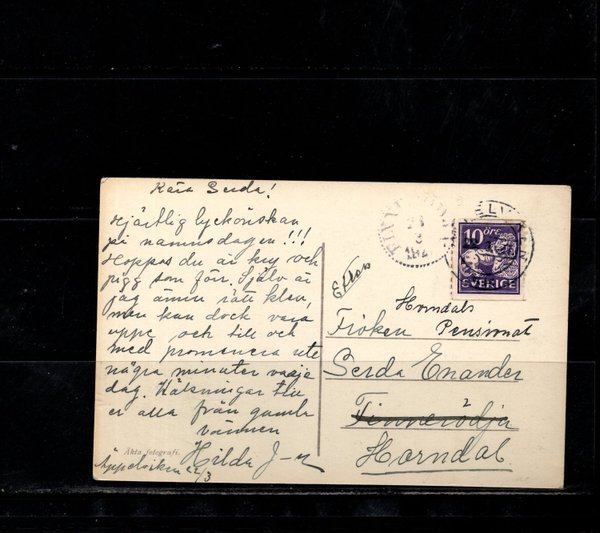 Kära Gerda!
Hjärtlig lyckönskan
på namnsdagen!!!
Hoppas du är kry och
pigg som förr. Själv är
jag ännu rätt klen,
men kan dock vara
uppe, och till och
med promenera ute
några minuter varje
dag. Hälsningar till
er alla från gamla
vännen
Hilda J-n
Äkta fotografi.
Äppelviken 22/3
10 ÖRE
SVERIGE
Horndals
Fröken Pensionat
Gerda Enander
Tinnerödja
Horndal